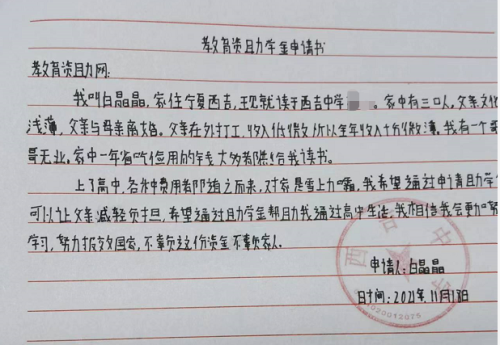 教育资且力学金申请书
教育资且力网:
我叫白晶晶,家住宁夏西吉,现就读于西吉中学 家中有三口人,父亲文化
浅薄,父亲与母亲离婚。父亲在外打工,收入低微,所以全年收入十分微薄。我有一个哥
哥无业,家中一年省吃俭用的钱大多都供给我读书。
上了高中,各种费用都随之而来,对家是雪上加霜,我希望通过申请且力学
可以让父亲减轻负担,希望通过且力学金帮且力我通过高中生活,我相信我会更加
学习,努力报效国家,不辜负这份资金不辜负家人。
申请人:白晶晶
日时间:2021年11月13日
西吉中学